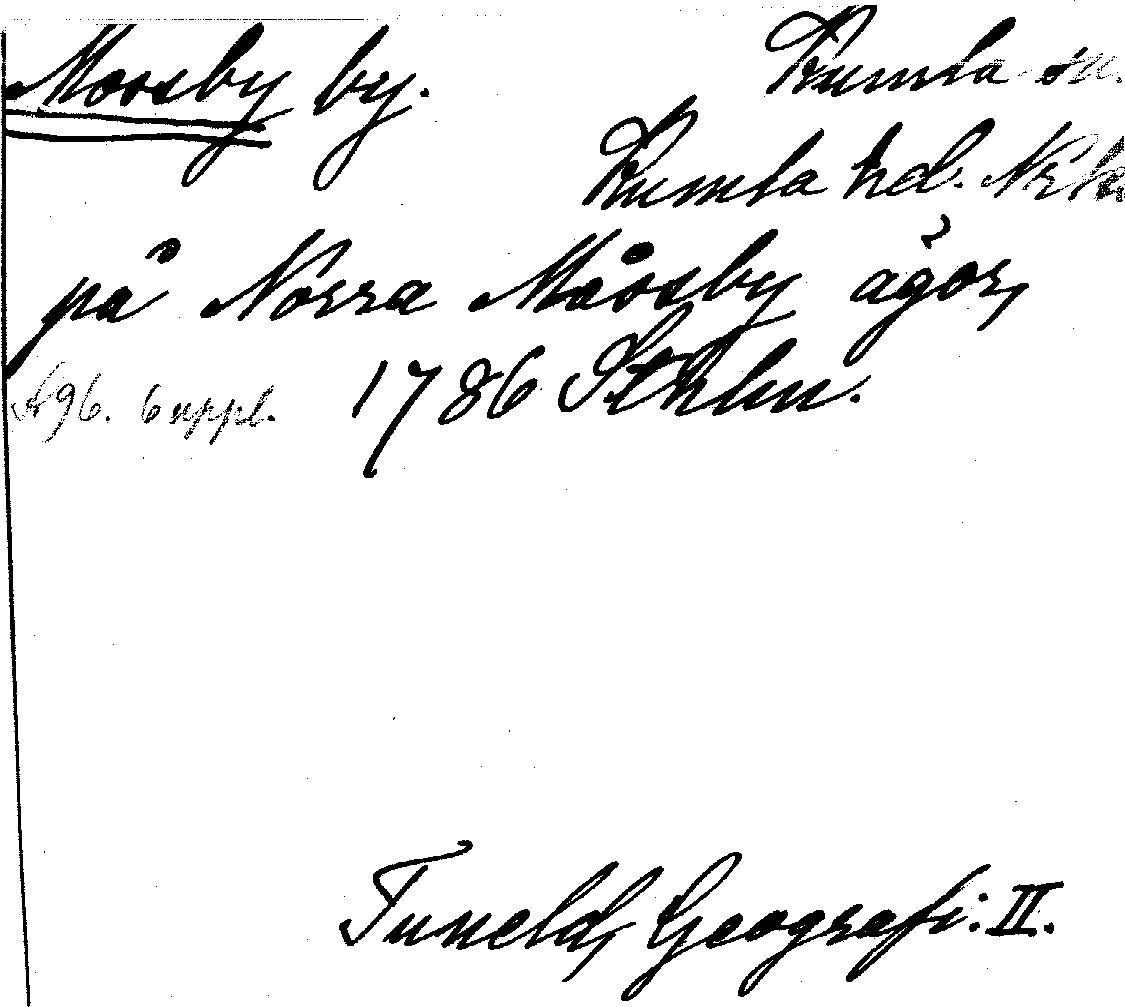 Mossby by. Kumla sn.
Kumla hd. Nrke
på Norra Måssby ägor,
s. 96. 6 uppl. 1786 Sthlm.
Tuneld, Geografi: II.